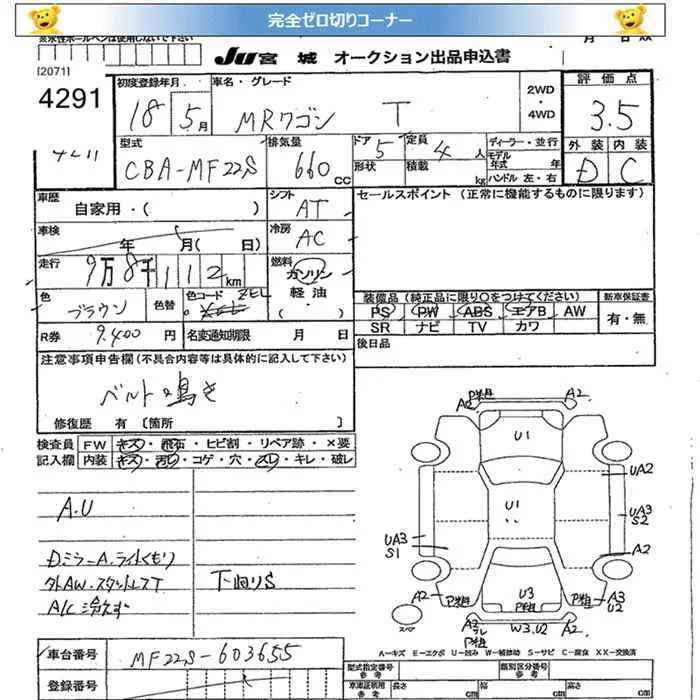 完全ゼロ切りコーナー
[2071]
JU 宮城 オークション出品申込書
4291
初度登録年月 18 5月
車名・グレード MRワゴン T
2WD・4WD
評価点 3.5
型式 CBA-MF22S
排気量 660 CC
ドア 5 定員 4人
形状 積載 kg
ディーラー・並行
モデル年式 年
ハンドル 左・右
外装 内装
D C
車歴 自家用・( )
シフト AT
セールスポイント (正常に機能するものに限ります)
車検 年 月( 日)
冷房 AC
走行 9万8千112km
燃料 ガソリン 軽油 ・( )
色 ブラウン 色替 色コード ZEL
装備品 (純正品に限り○をつけてください)
新車保証書
PS PW ABS エアB AW
有・無
SR ナビ TV カワ
R券 9.400円 名変通知期限 月 日
後日品
注意事項申告欄 (不具合内容等は具体的に記入して下さい)
ベルト鳴き
修復歴 有 [箇所 ]
検査員記入欄
FW キズ・飛石・ヒビ割・リペア跡・×要
内装 キズ・汚レ・コゲ・穴・スレ・キレ・破レ
A.U
Dミラー A. ライトくもり
外AW. スタットレスT 下回りS
A/C 冷えず
P粗
A2 A2
U1
UA2
U1
UA3
S2
UA3
S1
A2
A2 P粗 U3 P粗 P粗 A3
U2
スペア
A2 W3.U2 A2
P粗
A-キズ E-エクボ U-凹み W-補修跡 S-サビ C-腐食 XX-交換済
車台番号 MF22S-603655
型式指定番号 参考
類別区分番号 参考
登録番号
車庫証明用 参考 長さ cm 幅 cm 高さ cm